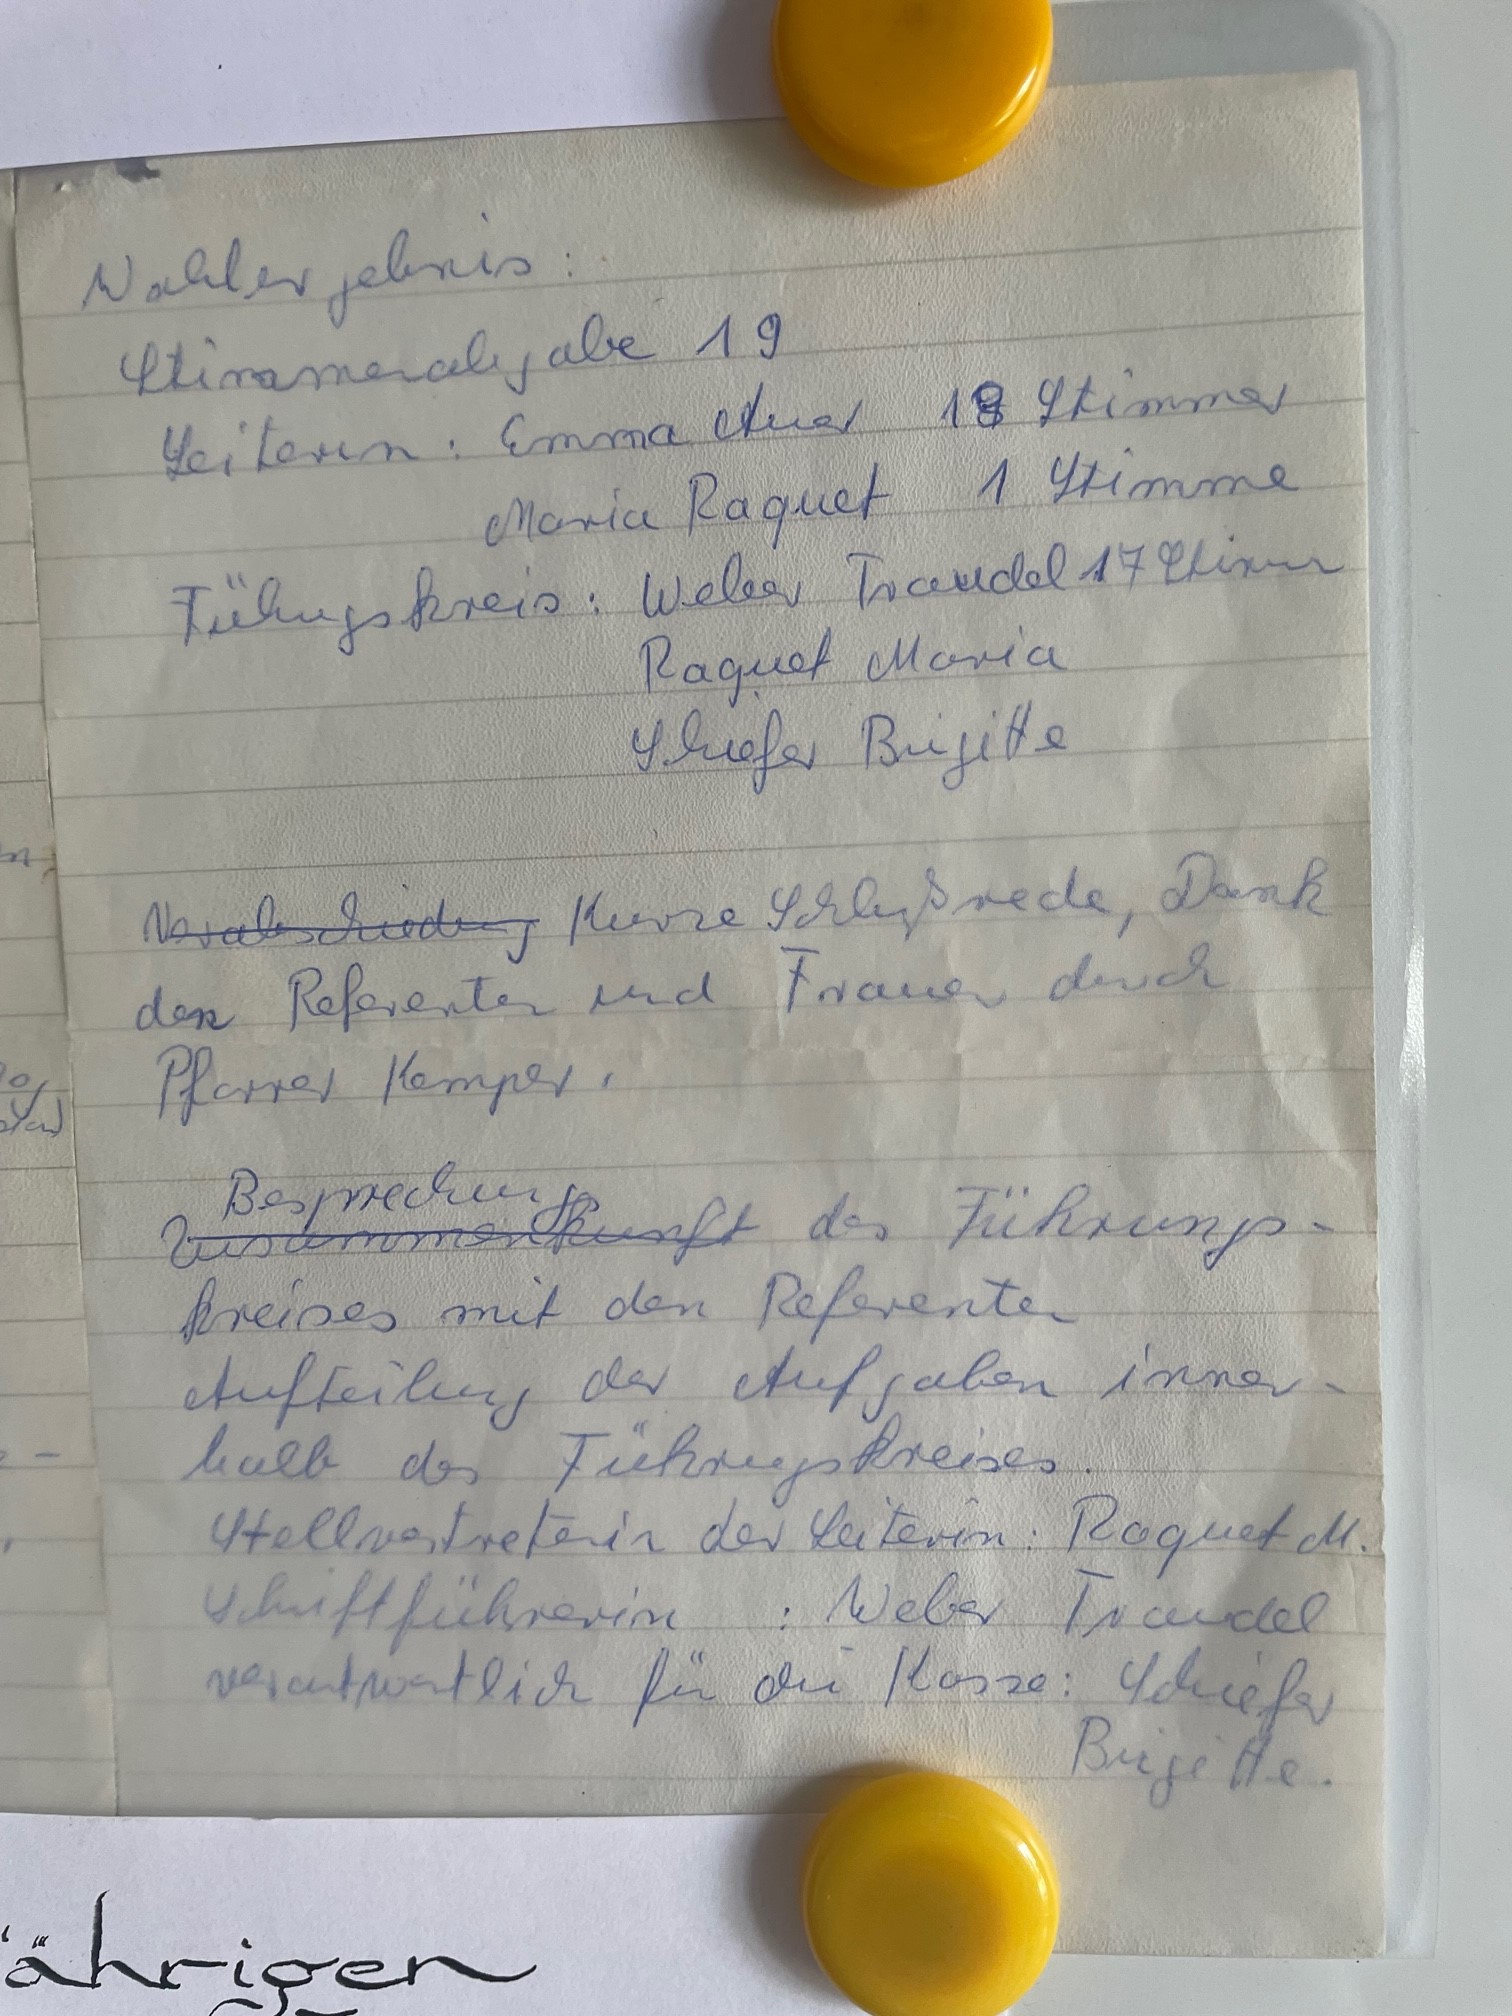 Wahlergebnis:
Stimmenabgabe 19
Leiterin: Emma Auer 18 Stimmen
Maria Raquet 1 Stimme
Führungskreis: Weber Traudel 17 Stimmen
Raquet Maria
Schiefer Brigitte
Verabschiedung Kurze Schlußrede, Dank
den Referenten und Frauen durch
Pfarrer Kemper.
Besprechung
Zusammenkunft des Führungs-
kreises mit den Referenten
Aufteilung der Aufgaben inner-
halb des Führungskreises.
Stellvertreterin der Leiterin: Raquet M.
Schriftführerin : Weber Traudel
verantwortlich für die Kasse: Schiefer
Brigitte.
ährigen